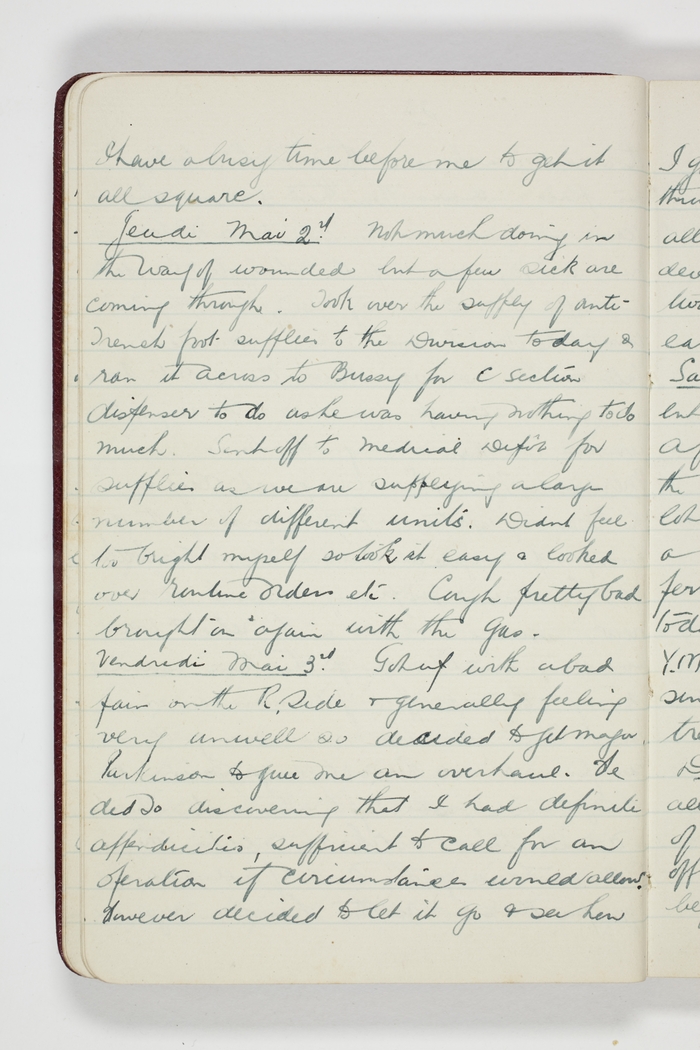 I have a busy time before me to get it
all square.
Jeudi Mai 2nd. Not much doing in
the way of wounded but a few sick are
coming through. Took over the supply of anti-
Trench foot supplies to the Division today &
ran it across to Bussy for C section
dispenser to do as he was having nothing to do
much. Sent off to Medical Depôt for
supplies as we are supplying a large
number of different units. Didnt feel
too bright myself so took it easy & looked
over Routine Orders etc. Cough pretty bad
brought on again with the Gas.
Vendredi Mai 3rd. Got up with a bad
pain on the R. side & generally feeling
very unwell so decided to get Major
Parkinson to give me an overhaul. He
did so discovering that I had definite
appendicitis, sufficient to call for an
operation if circumstances would allow.
However decided to let it go & see how
I g
all
dev
ea
Sa
but
a
the
lot
a
fer
tod
Y.M
tre
D
all
of
off
be